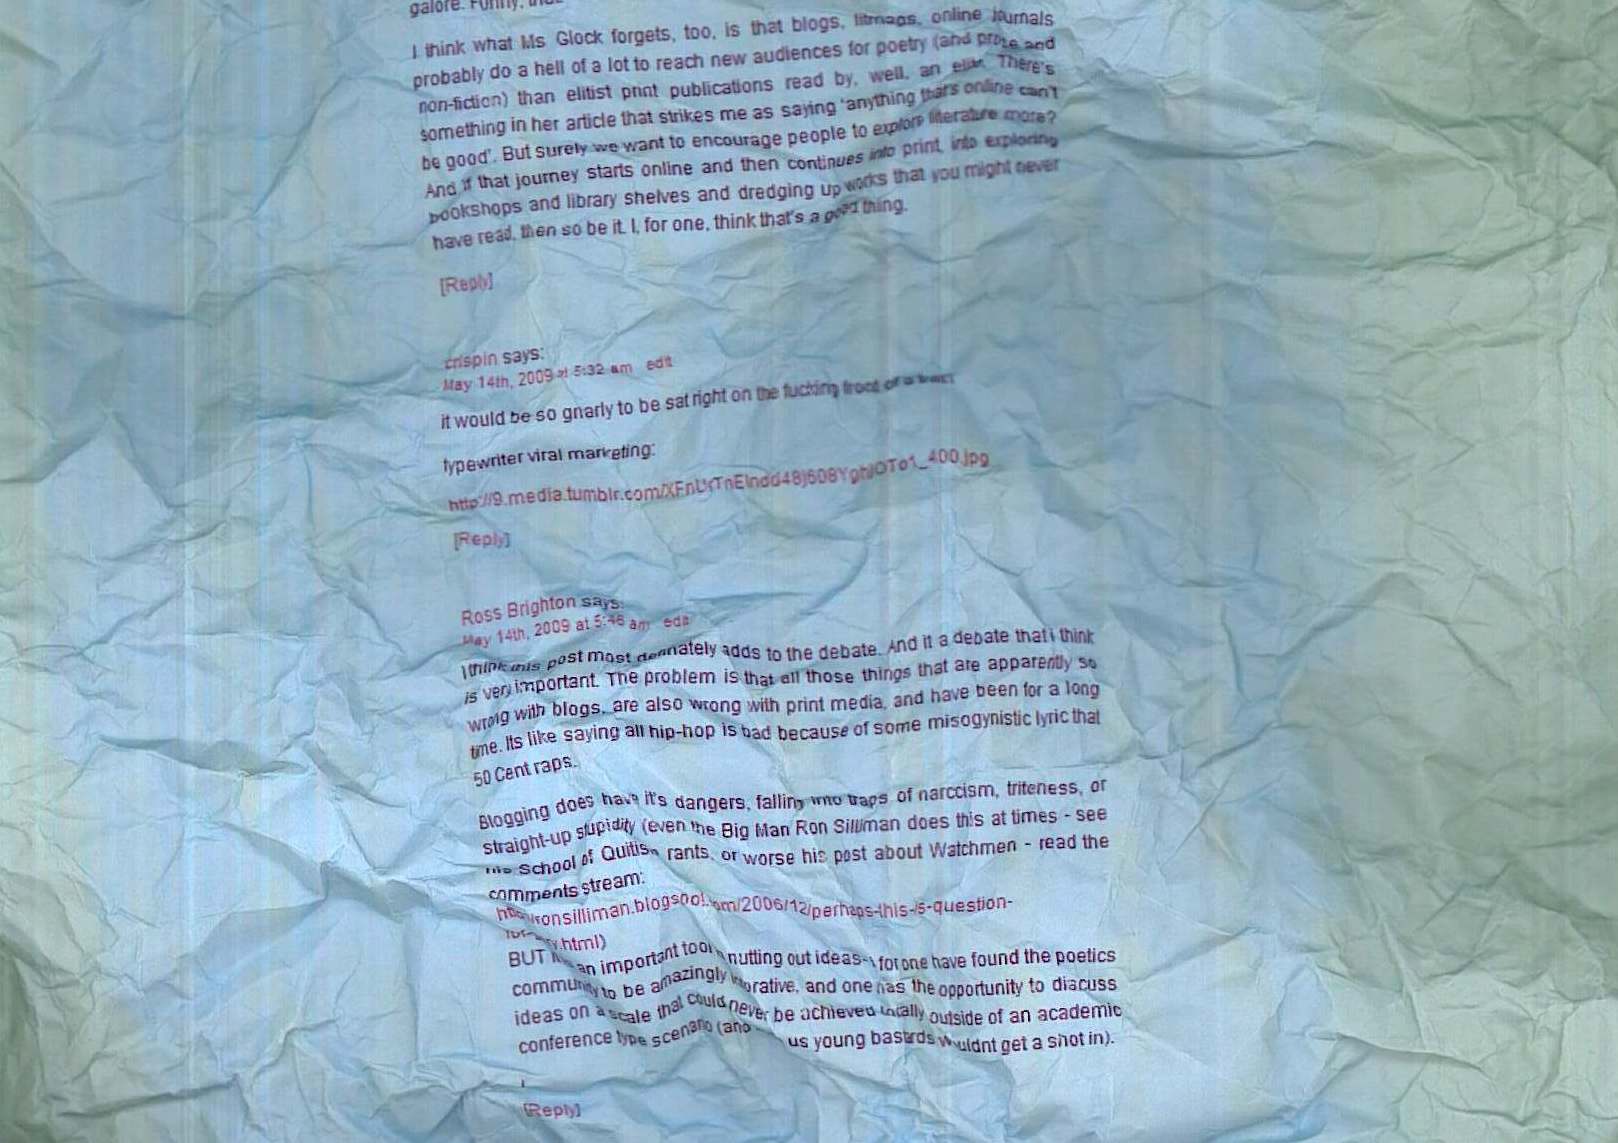 galore. Funny,
I think what Ms Glock forgets, too, is that blogs, litmags, online journals
probably do a hell of a lot to reach new audiences for poetry (and prose and
non-fiction) than elitist print publications read by, well, an elite. There's
something in her article that strikes me as saying 'anything that's online can't
be good'. But surely we want to encourage people to explore literature more?
And if that journey starts online and then continues into print, into exploring
bookshops and library shelves and dredging up works that you might never
have read, then so be it. I, for one, think that's a good thing.
[Reply]
crispin says:
May 14th, 2009 at 5:32 am edit
it would be so gnarly to be sat right on the fucking front of a
typewriter viral marketing:
[Reply]
Ross Brighton says:
May 14th, 2009 at 5:46 am edit
I think this post most definately adds to the debate. And it a debate that i think
is very important. The problem is that all those things that are apparently so
wrong with blogs, are also wrong with print media, and have been for a long
time. Its like saying all hip-hop is bad because of some misogynistic lyric that
50 Cent raps.
Blogging does have it's dangers, falling into traps of narccism, triteness, or
straight-up stupidity (even the Big Man Ron Silliman does this at times - see
his School of Quitish rants, or worse his post about Watchmen - read the
comments stream:
ronsilliman.blogspot.com/2006/12/perhaps-this-is-question-
html)
BUT an important tool nutting out ideas- i for one have found the poetics
community to be amazingly and one has the opportunity to discuss
ideas on a scale that could never be achieved totally outside of an academic
conference type scenario (and us young bastards wouldnt get a shot in).
[Reply]